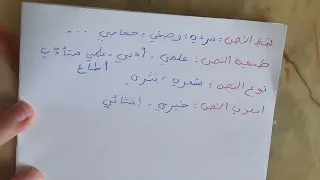 نمط النص : سردي ، وصفي ، حجاجي ...
طبيعة النص : علمي ، أدبي ، علمي متأدب
نوع النص : شعري ، نثري
أسلوب النص : خبري ، إنشائي